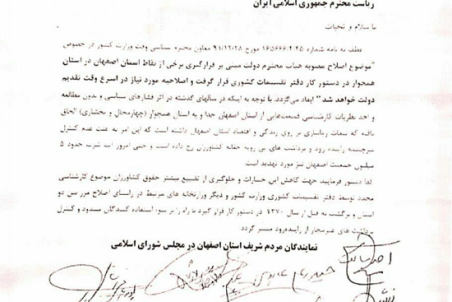 ریاست محترم جمهوری اسلامی ایران
با سلام و تحیات
عطف به نامه شماره ۱۶۵۶۶۶/۴۲/۴۵ مورخ ۹۱/۱۲/۲۸ معاون محترم سیاسی وقت وزارت کشور در خصوص
"موضوع اصلاح مصوبه هیات محترم دولت مبنی بر قرارگیری برخی از نقاط استان اصفهان در استان
همجوار در دستور کار دفتر تقسیمات کشوری قرار گرفت و اصلاحیه مورد نیاز در اسرع وقت تقدیم
دولت خواهد شد" ایفاد می‌گردد. با توجه به اینکه در سالهای گذشته در اثر فشارهای سیاسی و بدون مطالعه
و اخذ نظریات کارشناسی قسمت‌هایی از استان اصفهان جدا و به استان همجوار (چهارمحال و بختیاری) الحاق
یافته که تبعات زیانباری بر روی زندگی و اقتصاد استان اصفهان داشته است که این امر به علت عدم کنترل
سرچشمه زاینده رود و برداشت های بی رویه حقابه کشاورزان رخ داده است و حتی امروز آب شرب حدود ۵
میلیون جمعیت اصفهان نیز مورد تهدید است.
لذا دستور فرمایید جهت کاهش این خسارات و جلوگیری از تضییع بیشتر حقوق کشاورزان موضوع کارشناسی
مجدد توسط دفتر تقسیمات کشوری وزارت کشور و دیگر وزارتخانه های مرتبط در راستای اصلاح مرز بین دو
استان و برگشت به قبل از سال ۱۳۷۰ در دستور کار قرار گیرد تا راه را بر سوء استفاده کنندگان مسدود و کنترل
برداشت های غیرمجاز از زاینده‌رود میسر گردد.
نمایندگان مردم شریف استان اصفهان در مجلس شورای اسلامی